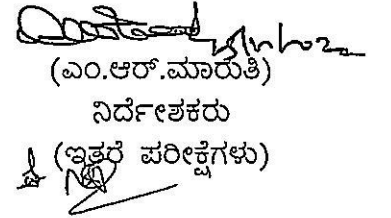 (ಎಂ.ಆರ್.ಮಾರುತಿ)
ನಿರ್ದೇಶಕರು
(ಇತರೆ ಪರೀಕ್ಷೆಗಳು)